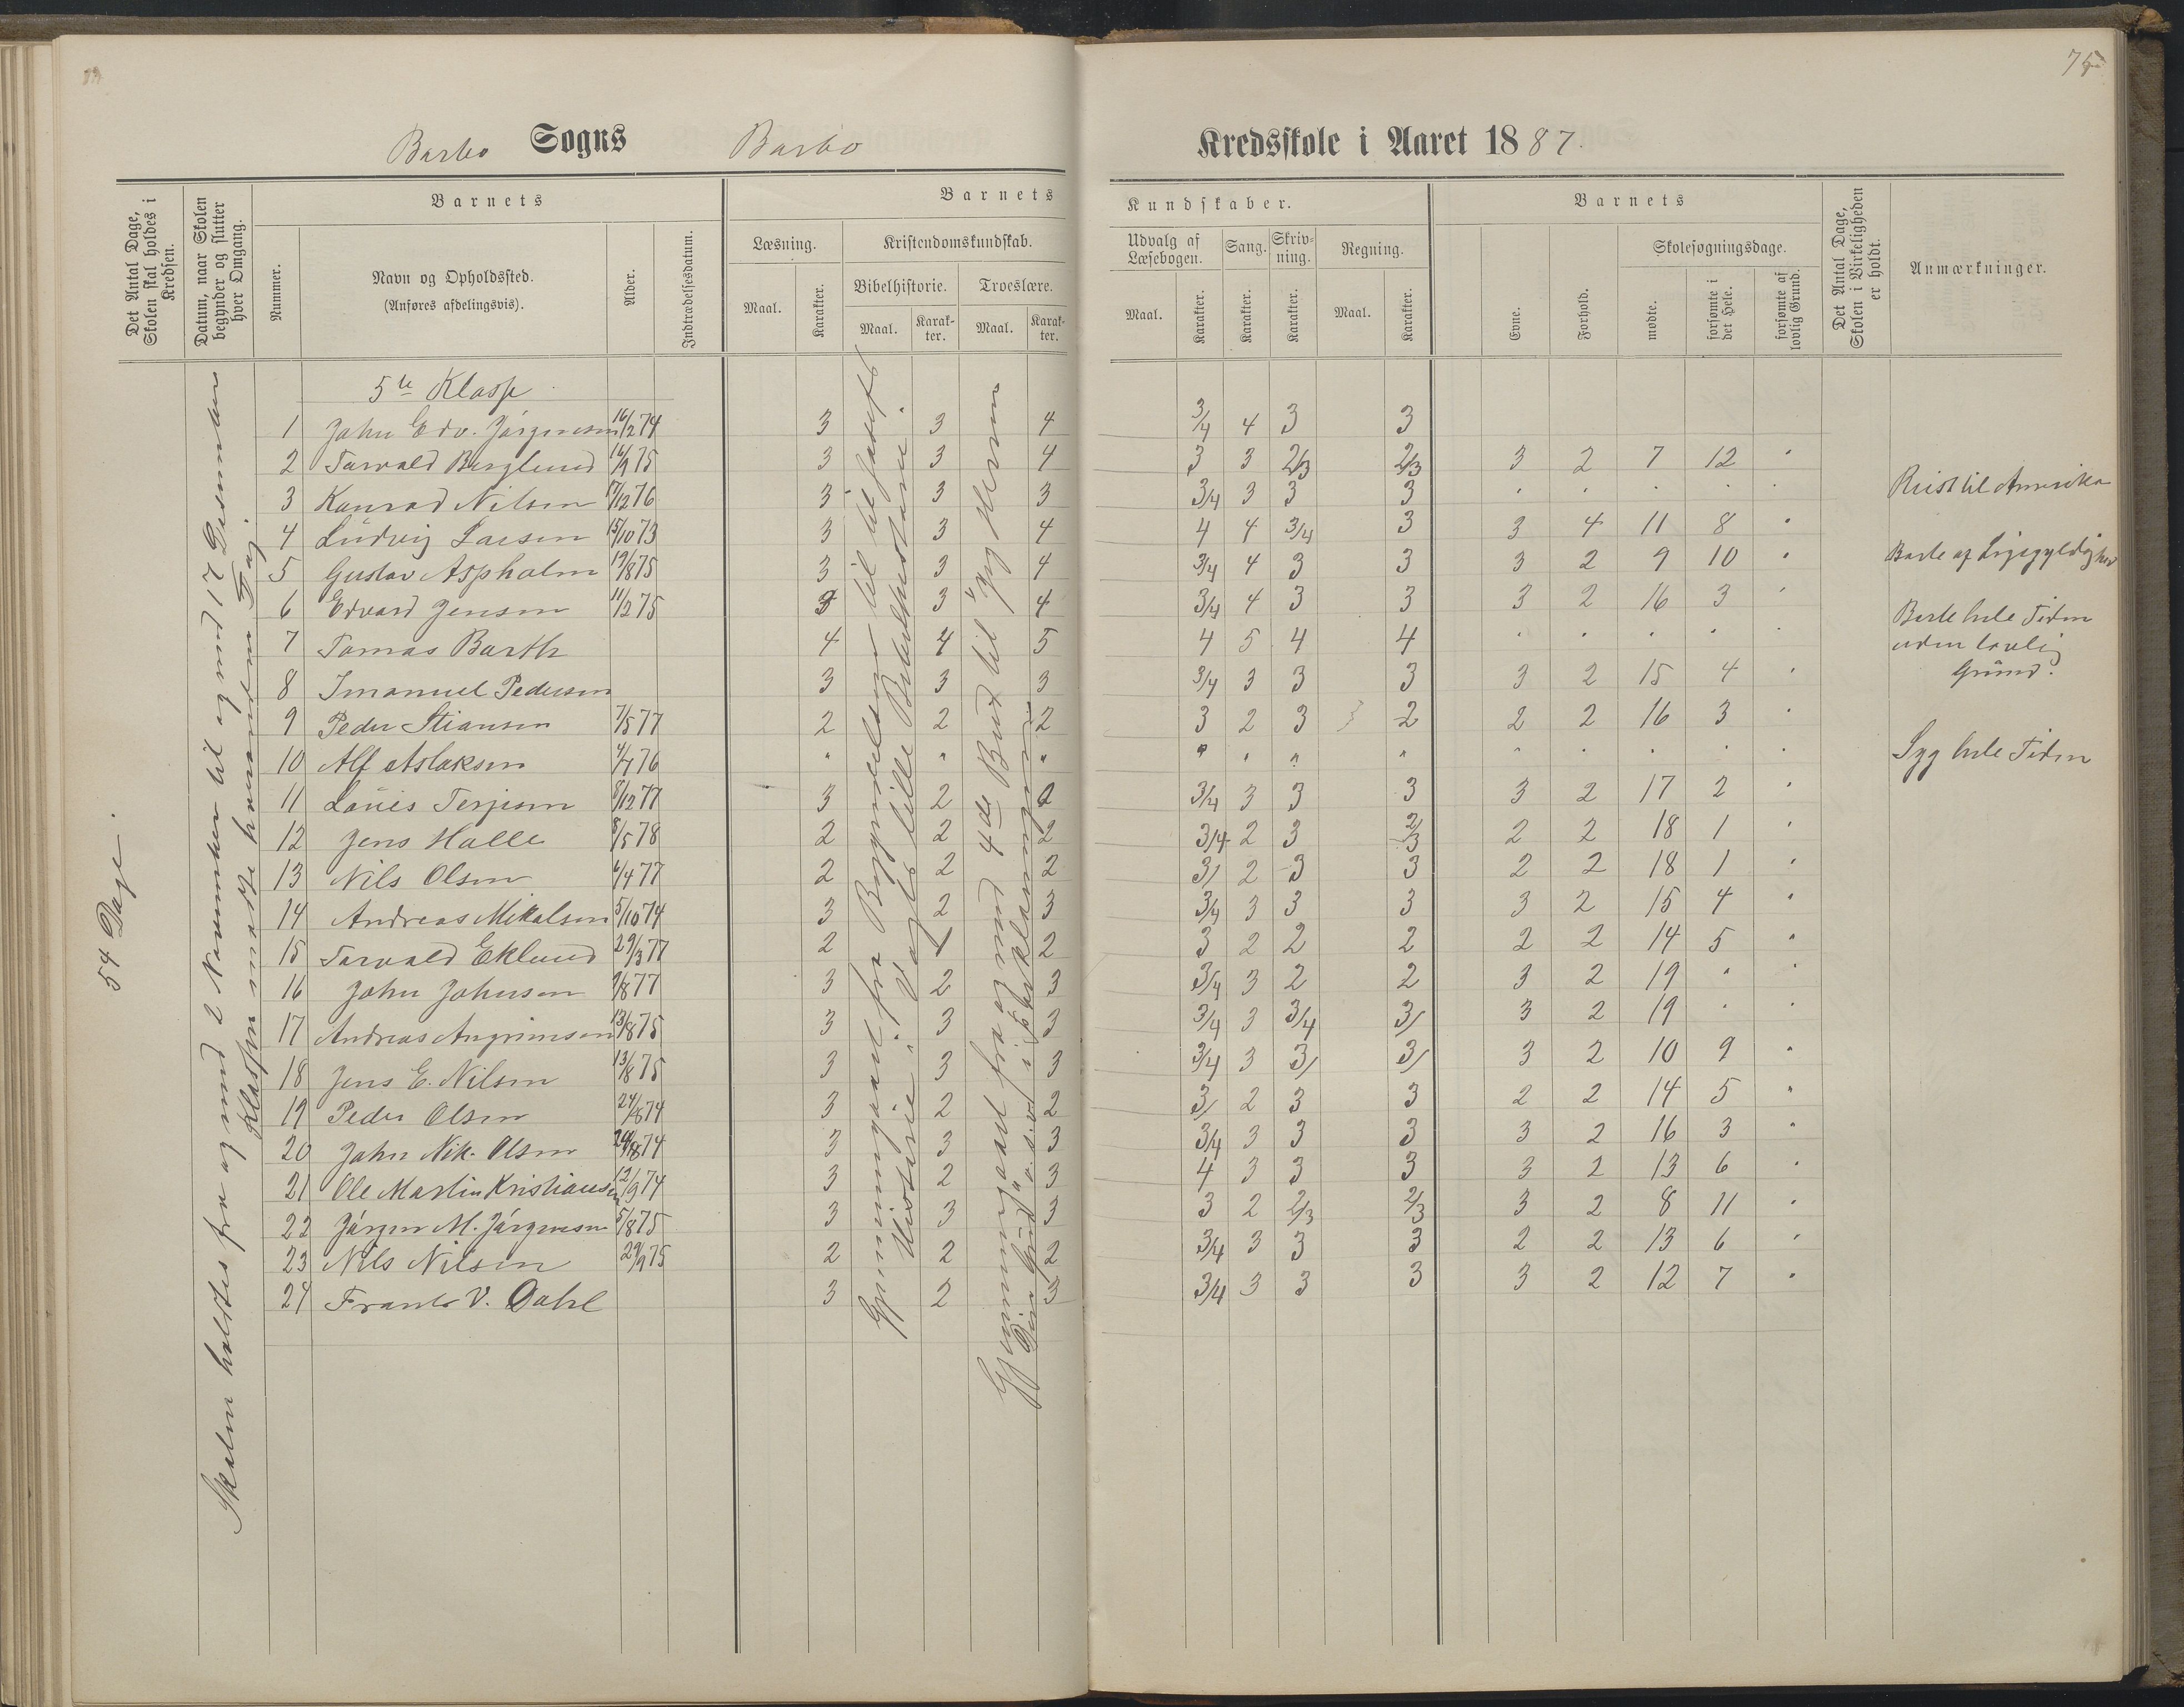 75
Barbo Sogns Barbo Kredsskole i Aaret 1887.
Det Antal Dage, Skolen skal holdes i Kredsen.
Datum, naar Skolen begynder og slutter hver Omgang.
Nummer.
Barnets
Navn og Opholdssted.
(Anføres afdelingsvis).
Alder.
Indtrædelsesdatum.
Barnets
Læsning.
Maal.
Karakter.
Kristendomskundskab.
Bibelhistorie.
Maal.
Karakter.
Troeslære.
Maal.
Karakter.
Kundskaber.
Udvalg af Læsebogen.
Maal.
Karakter.
Sang.
Karakter.
Skrivning.
Karakter.
Regning.
Maal.
Karakter.
Barnets
Evne.
Forhold.
Skolesøgningsdage.
mødte.
forsømte i det Hele.
forsømte af lovlig Grund.
Det Antal Dage, Skolen i Virkeligheden er holdt.
Anmærkninger.
54 Dage.
Skolen holdtes fra og med 2 November til og med 17 Desember
Klassen mødte hverandem Dag
Gjennemgaaet fra Begyndelsen til
Historie i Vogts lille Bibelhistorie.
Gjennemgaaet fra og med 4de Bud til
5te Klasse
1 John Edv. Jørgensen 16/2 74 3 3 4 3/4 4 3 3
2 Torvald Berglund 16/9 75 3 3 4 3 3 2/3 2/3 3 2 7 12 "
3 Konrad Nilsen 17/12 76 3 3 3 3/4 3 3 3 " " " " " Reist til Amerika
4 Ludvig Larsen 15/10 73 3 3 4 4 4 3/4 3 3 4 11 8 "
5 Gustav Aspholm 19/8 75 3 3 4 3/4 4 3 3 3 2 9 10 " Borte af Ligegyldighed
6 Edvard Jensen 11/2 75 3 3 4 3/4 4 3 3 3 2 16 3 "
7 Tomas Barth 4 4 5 4 5 4 4 " " " " " Borte hele Tiden uden lovlig Grund.
8 Imanuel Pedersen 3 3 3 3/4 3 3 3 3 2 15 4 "
9 Peder Stiansen 7/5 77 2 2 2 3 2 3 2 2 2 16 3 "
10 Alf Aslaksen 4/7 76 " " " " " " " " " " " " Syg hele Tiden
11 Louis Terjesen 8/12 77 3 2 2 3/4 3 3 3 3 2 17 2 "
12 Jens Halle 8/5 78 2 2 2 3/4 2 3 2/3 2 2 18 1 "
13 Nils Olsen 6/4 77 2 2 2 3/ 2 3 3 2 2 18 1 "
14 Andreas Mikalsen 5/10 74 3 2 3 3/4 3 3 3 3 2 15 4 "
15 Torvald Eklund 29/3 77 2 1 2 3 2 2 2 2 2 14 5 "
16 John Johnsen 9/8 77 3 2 3 3/4 3 2 2 3 2 19 " "
17 Andreas Angrimsen 13/8 75 3 3 3 3/4 3 3/4 3/ 3 2 19 " "
18 Jens E. Nilsen 13/8 75 3 3 3 3/4 3 3/ 3/ 3 2 10 9 "
19 Peder Olsen 24/8 74 3 2 2 3/ 2 3 3 2 2 14 5 "
20 John Nik. Olsen 24/8 74 3 3 3 3/4 3 3 3 3 2 16 3 "
21 Ole Martin Kristiansen 12/9 74 3 2 3 4 3 3 3 3 2 13 6 "
22 Jørgen M. Jørgensen 5/8 75 3 3 3 3 2 2/3 2/3 3 2 8 11 "
23 Nils Nilsen 29/9 75 2 2 2 3/4 3 3 3 2 2 13 6 "
24 Frants V. Dahl 3 2 3 3/4 3 3 3 3 2 12 7 "